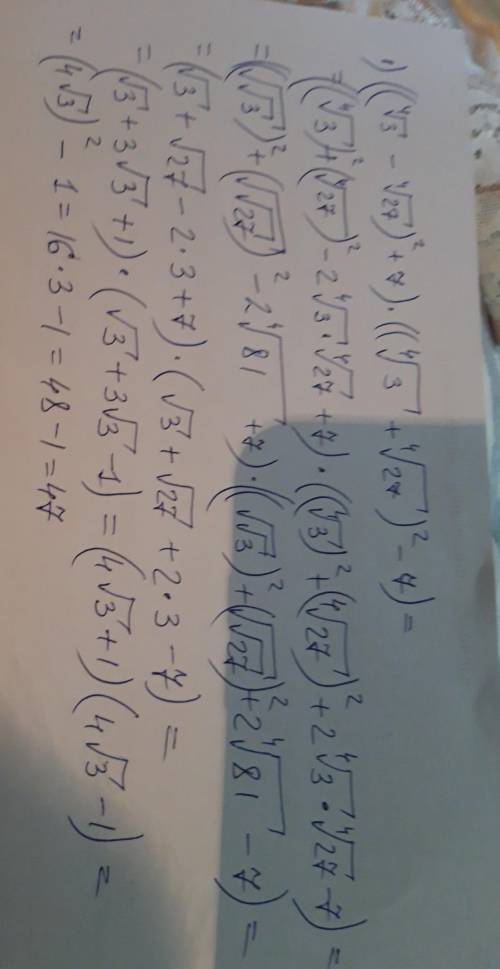 1) ((∜3 - ∜27)² + 7) · ((∜3 + ∜27)² - 7) =
= ((∜3)² + (∜27)² - 2∜3 · ∜27 + 7) · ((∜3)² + (∜27)² + 2∜3 · ∜27 - 7) =
= ((√√3)² + (√√27)² - 2∜81 + 7) · ((√√3)² + (√√27)² + 2∜81 - 7) =
= (√3 + √27 - 2·3 + 7) · (√3 + √27 + 2·3 - 7) =
= (√3 + 3√3 + 1) · (√3 + 3√3 - 1) = (4√3 + 1)(4√3 - 1) =
= (4√3)² - 1 = 16·3 - 1 = 48 - 1 = 47